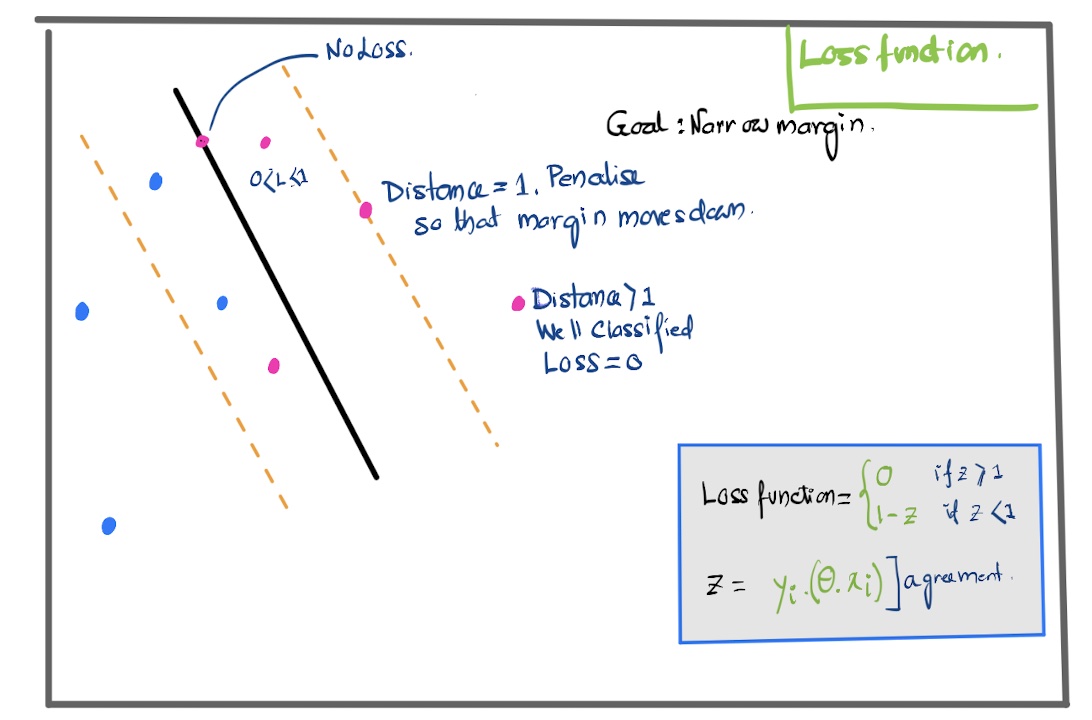 No Loss.
Loss function.
Goal : Narrow margin.
0<L<1
Distance = 1. Penalise
so that margin moves down.
Distance > 1
Well Classified
Loss = 0
Loss function = { 0 if z > 1
1 - z if z < 1
z = yi . (θ. xi) ] agreement.